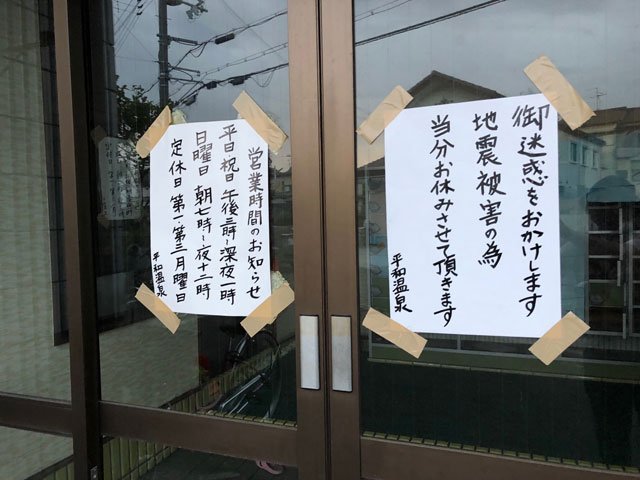 御迷惑をおかけします
地震被害の為
当分お休みさせて頂きます
平和温泉
営業時間のお知らせ
平日祝日 午後三時〜深夜一時
日曜日 朝七時〜夜十二時
定休日 第一第三月曜日
平和温泉